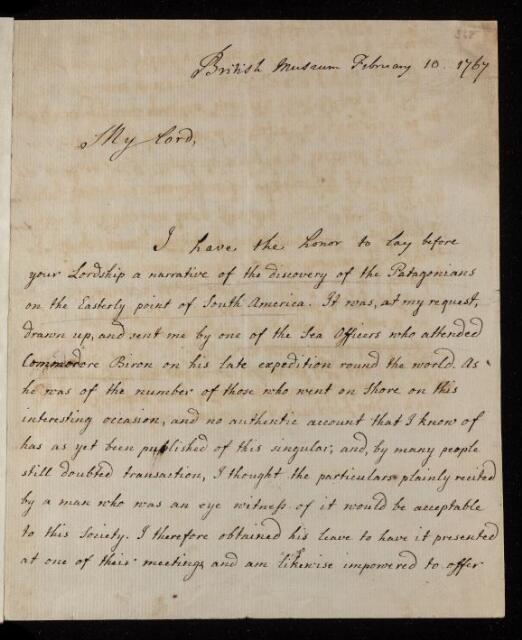 British Musæum February 10. 1767
My Lord,
I have the honor to lay before
your Lordship a narrative of the discovery of the Patagonians
on the Easterly point of South America. It was, at my request,
drawn up, and sent me by one of the Sea Officers who attended
Commodore Biron on his late expedition round the world. As
he was of the number of those who went on Shore on this
interesting occasion, and no authentic account that I know of
has as yet been published of this singular, and, by many people
still doubted transaction, I thought the particulars plainly recited
by a man who was an eye witness of it would be acceptable
to this Society. I therefore obtained his leave to have it presented
at one of their meetings, and am likewise impowered to offer